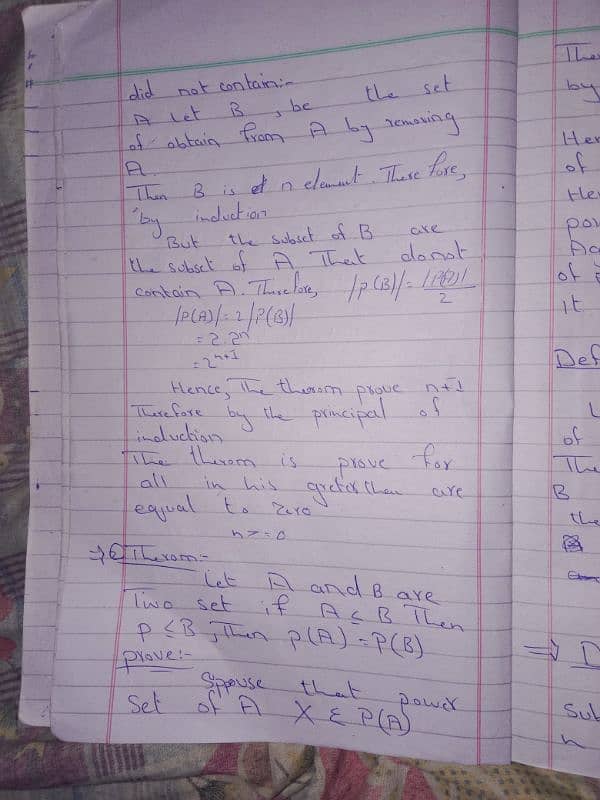 did not contain:-
A Let B , be the set
of obtain from A by removing
A.
Then B is n element. Therefore,
by induction
But the subset of B are
the subset of A That donot
contain A. Therefore, |P(B)| = |P(A)|/2
|P(A)| = 2|P(B)|
= 2.2ⁿ
= 2ⁿ⁺¹
Hence, The therom prove n+1
Therefore by the principal of
induction
The therom is prove for
all in his greter then are
equal to Zero
n >= 0
⇒ Therom:-
Let A and B are
Two set if A ≤ B Then
P ≤ B, Then P(A) = P(B)
prove:-
Sppouse that power
Set of A X ε P(A)
The
by
Her
of
Her
pow
Aa
of
it
Def
L
of
The
B
the
⇒ D
Sub
n